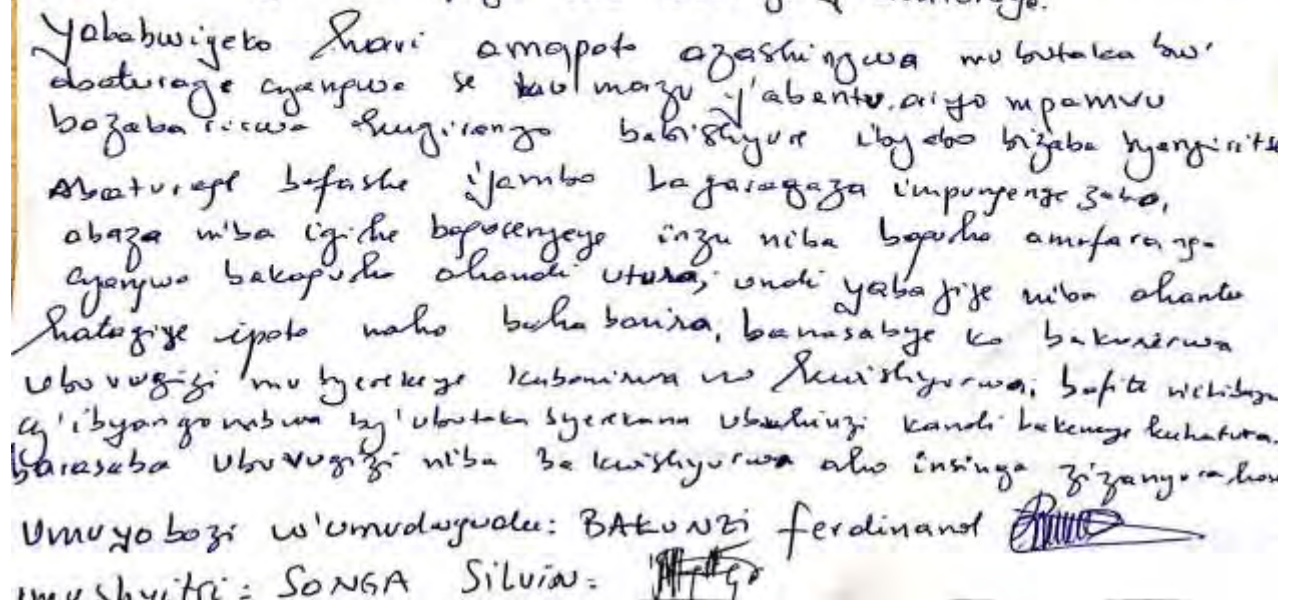 Yababwiyeko hari amapoto azashingwa mu butaka bw'
abaturage cyangwa se mazu y'abantu, ariyo mpamvu
bazabarirwa kugirango babishyure ibyabo bizaba byangiritse
Abaturage bafashe ijambo bagaragaza impungenge zabo,
abaza niba igihe bagucenyeye inzu niba baguha amafaranga
cyangwa bakaguha ahandi utura, undi yabajije niba ahantu
hatagiye ipoto naho bahabarira, banasabye ko bakorerwa
ubuvugizi mu byerekeye kubarirwa no kwishyurwa, bafite n'ikibazo
cy'ibyangombwa by'ubutaka byerekana ubuhinzi kandi bakeneye kuhatura.
barasaba ubuvugizi niba bakwishyurwa aho insinga zizanyura hose
Umuyobozi w'umudugudu: BAKUNZI ferdinand
umushyitsi: SONGA Silvin: